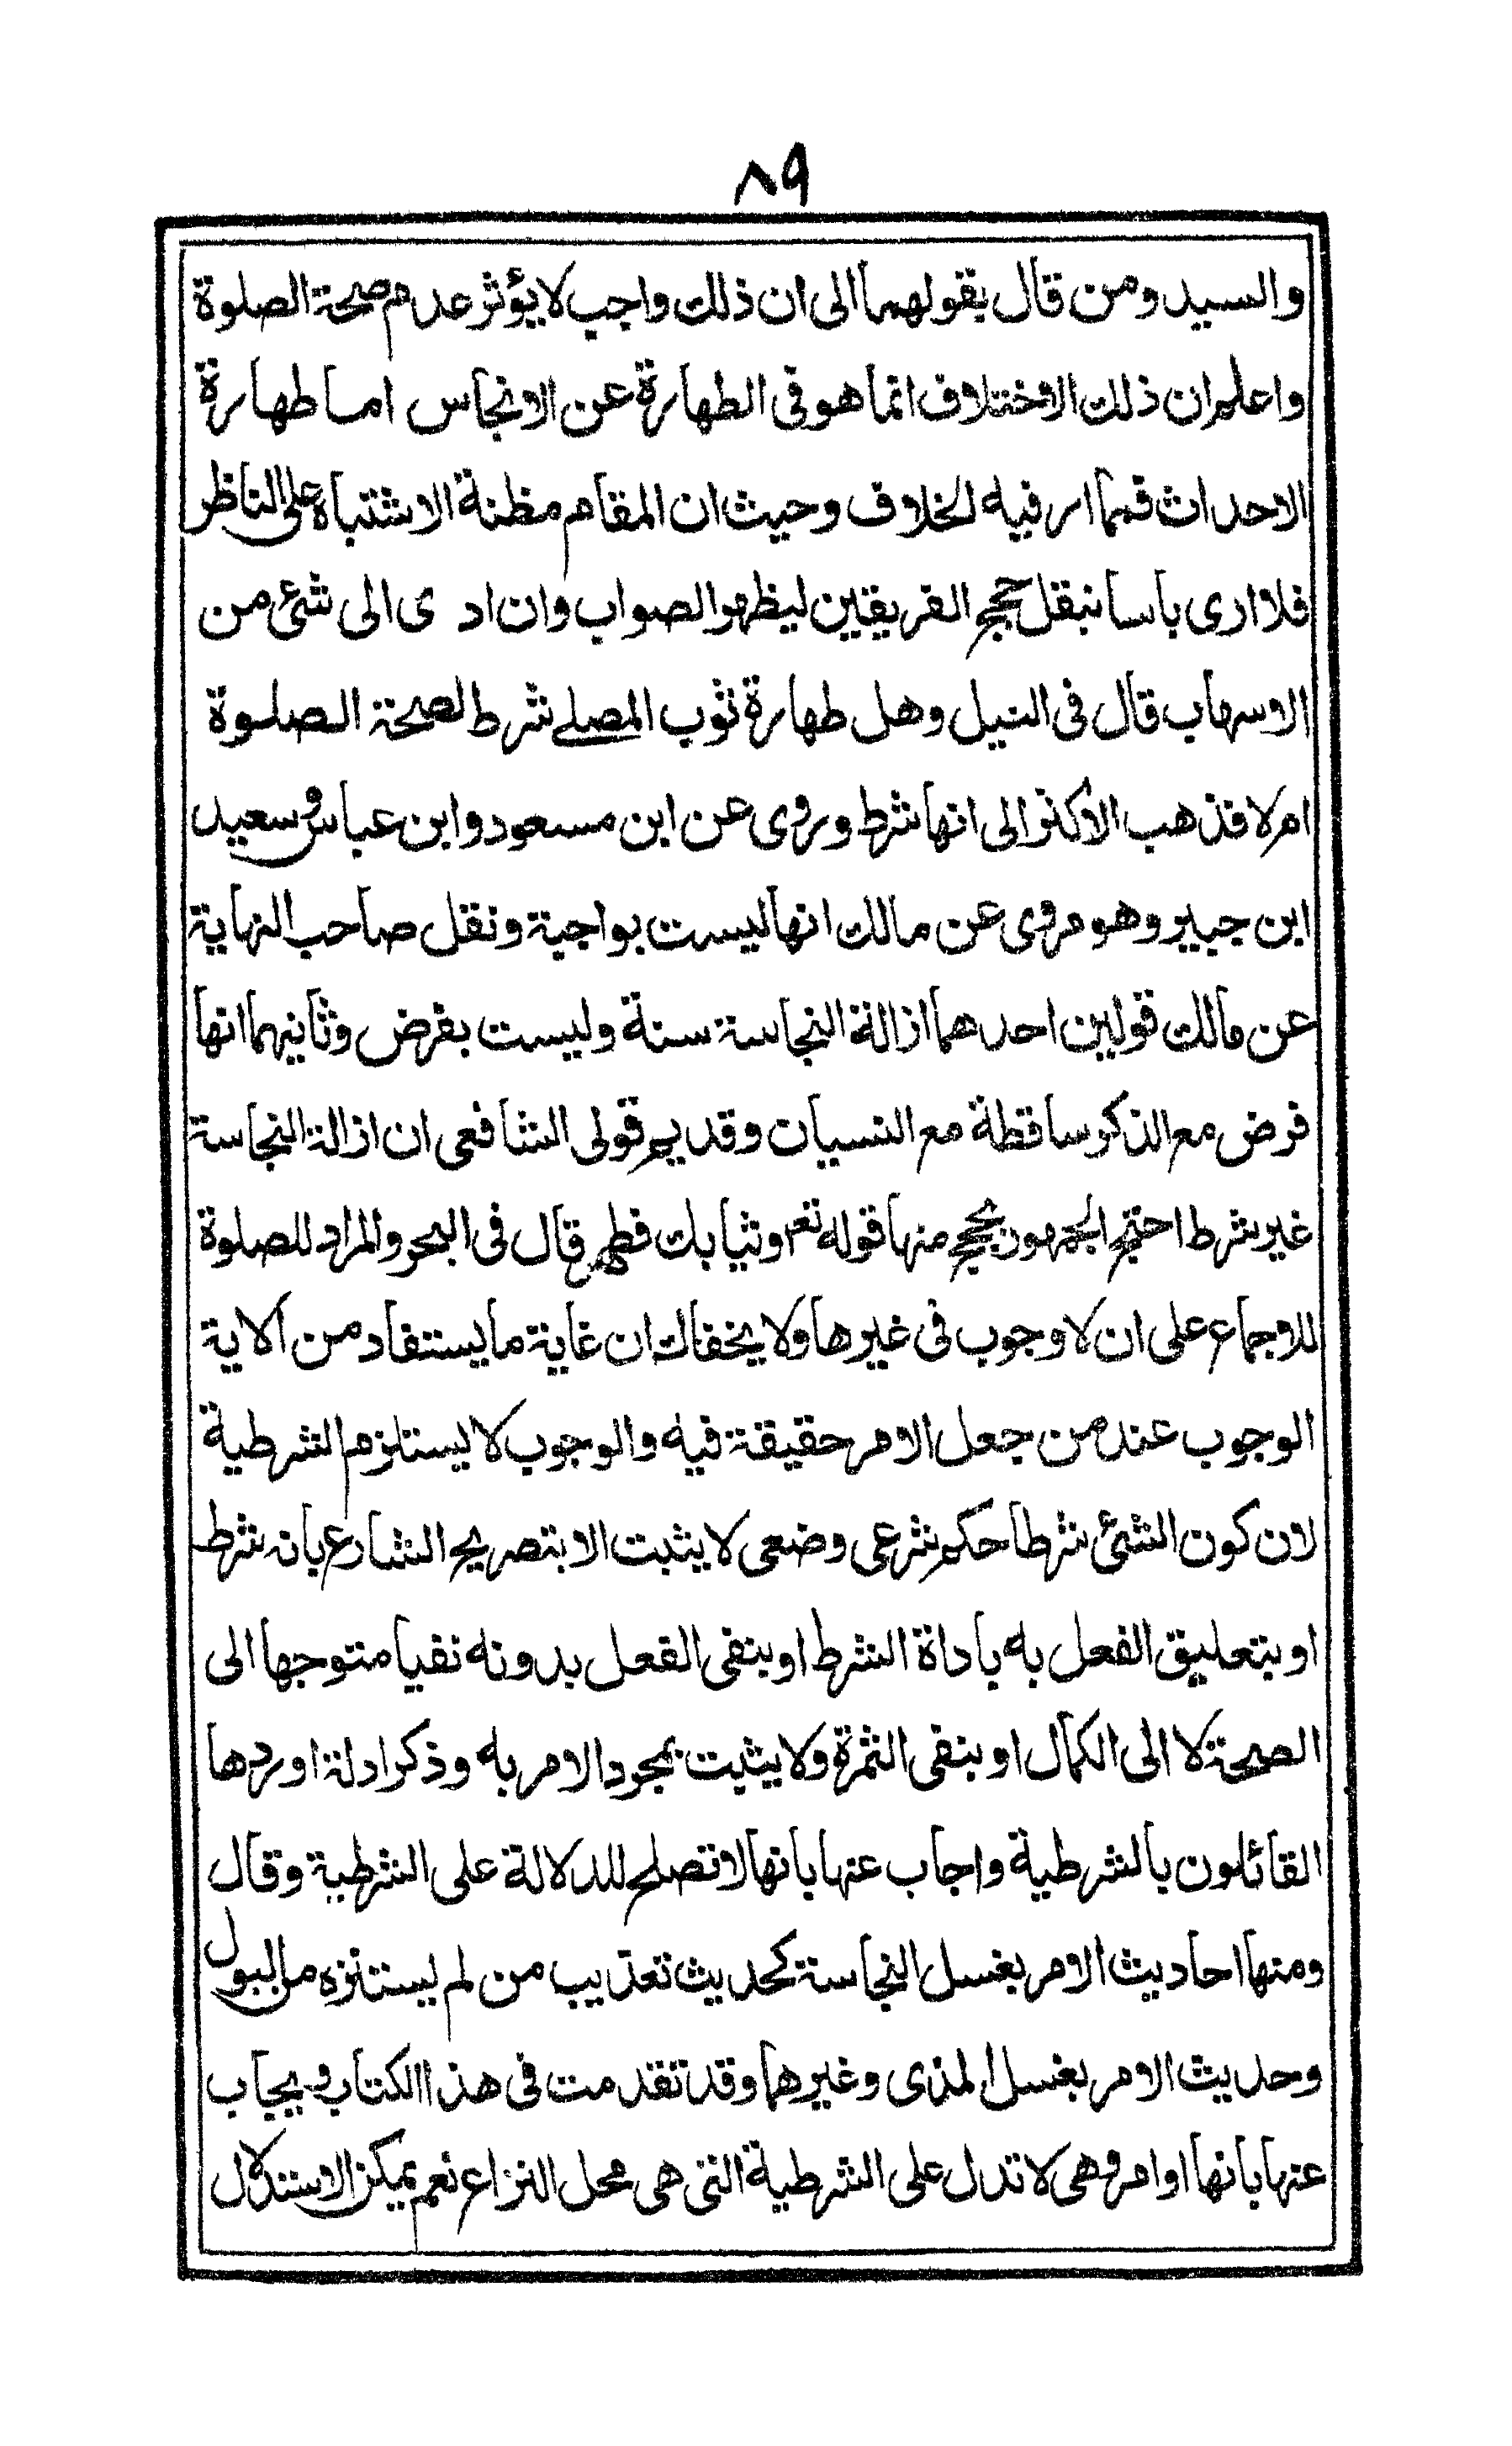 ٨٩
والسيد ومن قال بقولهما الى ان ذلك واجب لا يؤثر عدم صحة الصلوة
واعلم ان ذلك الاختلاف انما هو فى الطهارة عن الانجاس اما طهارة
الاحداث فمما ار فيه الخلاف وحيث ان المقام مظنة الاشتباه على الناظر
فلا ارى باسا بنقل حجج الفريقين ليظهر الصواب وان اد ى الى شئ من
الاسهاب قال فى النيل وهل طهارة ثوب المصلے شرط لصحة الصلوة
ام لا فذهب الاكثر الى انها شرط وروى عن ابن مسعود وابن عباس وسعيد
ابن جبير وهو مروى عن مالك انها ليست بواجبة ونقل صاحب النهاية
عن مالك قولين احدهما ازالة النجاسة سنة وليست بفرض وثانيهما انها
فرض مع الذكر ساقطة مع النسيان وقديم قولى الشافعى ان ازالة النجاسة
غير شرط احتج الجمهور بحجج منها قوله تعـ وثيابك فطهر قال فى البحر والمراد للصلوة
للاجماع على ان لا وجوب فى غيرها ولا يخفاك ان غاية ما يستفاد من الاية
الوجوب عند من جعل الامر حقيقة فيه والوجوب لا يستلزم الشرطية
لان كون الشئ شرطا حكم شرعى وضعى لا يثبت الا بتصريح الشارع بانه شرط
او بتعليق الفعل به باداة الشرط او بنفى الفعل بدونه نفيا متوجها الى
الصحة لا الى الكمال او بنفى الثمرة ولا يثبت بمجرد الامر به وذكر ادلة اوردها
القائلون بالشرطية واجاب عنها بانها لا تصلح للدلالة على الشرطية وقال
ومنها احاديث الامر بغسل النجاسة كحديث تعذيب من لم يستنزه من البول
وحديث الامر بغسل المذى وغيرهما وقد تقدمت فى هذا الكتاب ويجاب
عنها بانها اوامر وهى لا تدل على الشرطية التى هى محل النزاع نعم يمكن الاستدلال